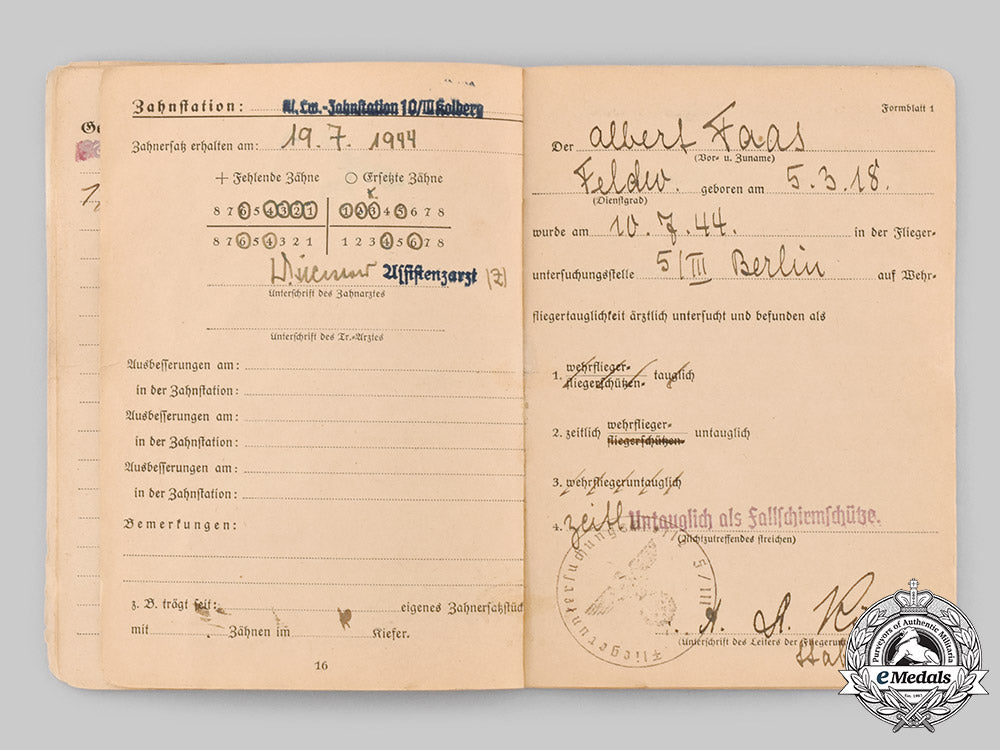 Zahnstation: Kl. Lw.-Zahnstation 10/III Kolberg
Zahnersatz erhalten am: 19. 7. 1944
+ Fehlende Zähne ○ Ersetzte Zähne
8 7 6 5 4 3 2 1 1 2 3 4 5 6 7 8
8 7 6 5 4 3 2 1 1 2 3 4 5 6 7 8
Assistenzarzt (Z)
Unterschrift des Zahnarztes
Unterschrift des Tr.-Arztes
Ausbesserungen am:
in der Zahnstation:
Ausbesserungen am:
in der Zahnstation:
Ausbesserungen am:
in der Zahnstation:
Bemerkungen:
z. B. trägt seit: eigenes Zahnersatzstück
mit Zähnen im Kiefer.
16
Formblatt 1
Der Albert Faas
(Vor- u. Zuname)
Feldw. geboren am 5.3.18.
(Dienstgrad)
wurde am 10.7.44. in der Flieger-
untersuchungsstelle 5/III Berlin auf Wehr-
fliegertauglichkeit ärztlich untersucht und befunden als
1. wehrflieger- tauglich
fliegerschützen-
2. zeitlich wehrflieger- untauglich
fliegerschützen-
3. wehrfliegeruntauglich
4. zeitl Untauglich als Fallschirmschütze.
(Nichtzutreffendes streichen)
Fliegeruntersuchungsstelle 5/III
(Unterschrift des Leiters der Fliegerun
Purveyors of Authentic Militaria
eMedals
Est. 1967